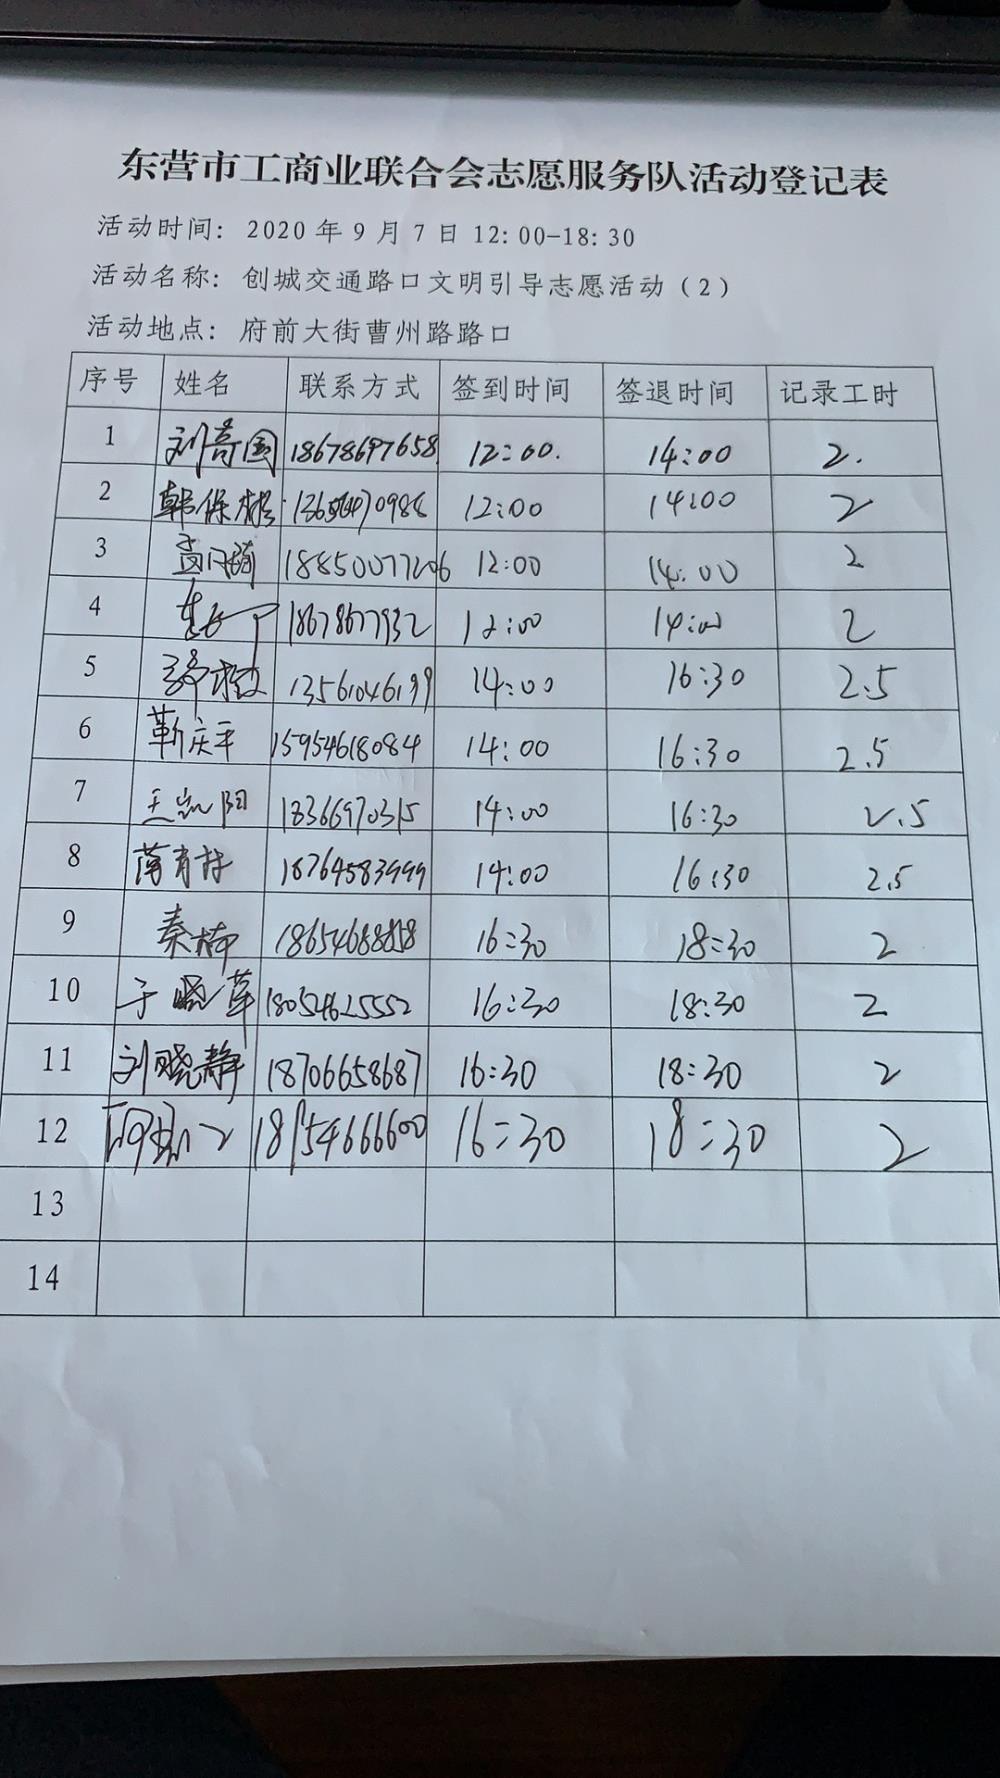 东营市工商业联合会志愿服务队活动登记表
活动时间: 2020年9月7日12:00-18:30
活动名称: 创城交通路口文明引导志愿活动(2)
活动地点: 府前大街曹州路路口
序号 姓名 联系方式 签到时间 签退时间 记录工时
1 刘奇国 18678697658 12:00. 14:00 2.
2 韩保 12:00 14:00 2
3 12:00 14:00 2
4 18678677932 12:00 14:00 2
5 13561046199 14:00 16:30 2.5
6 靳庆平 15954618084 14:00 16:30 2.5
7 王凯阳 18366970315 14:00 16:30 2.5
8 18764583999 14:00 16:30 2.5
9 秦楠 18654688858 16:30 18:30 2
10 于晓苹 18054625552 16:30 18:30 2
11 刘晓静 18706658687 16:30 18:30 2
12 18154666600 16:30 18:30 2
13
14